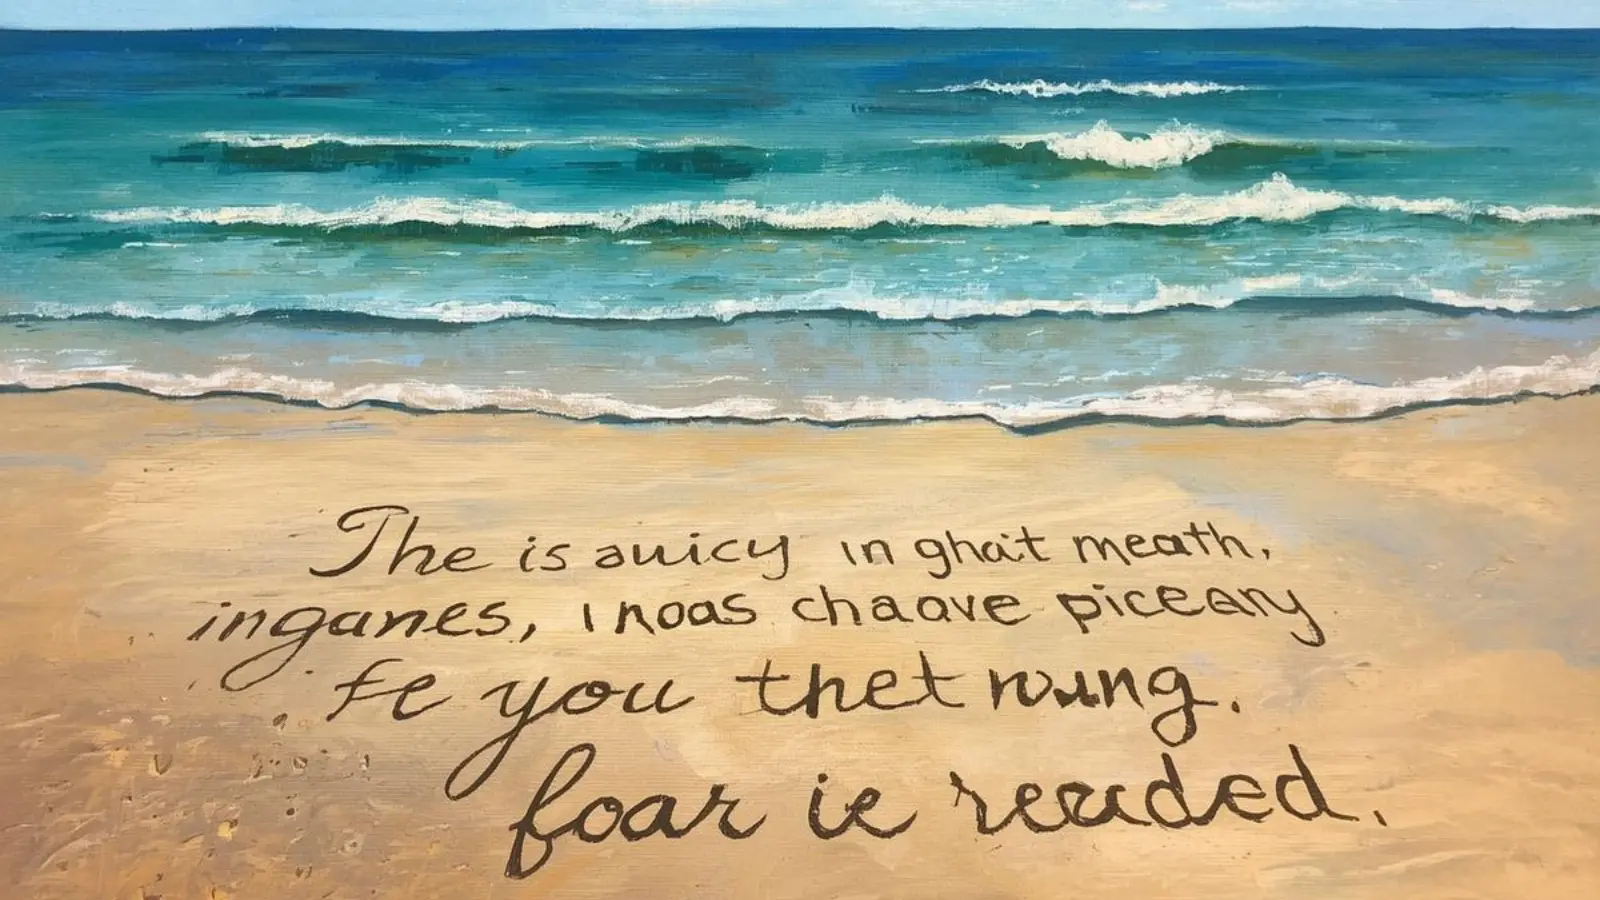 The is auicy in ghait meath,
inganes, inoas chaave piceany
fe you thet nung.
foar ie readed.